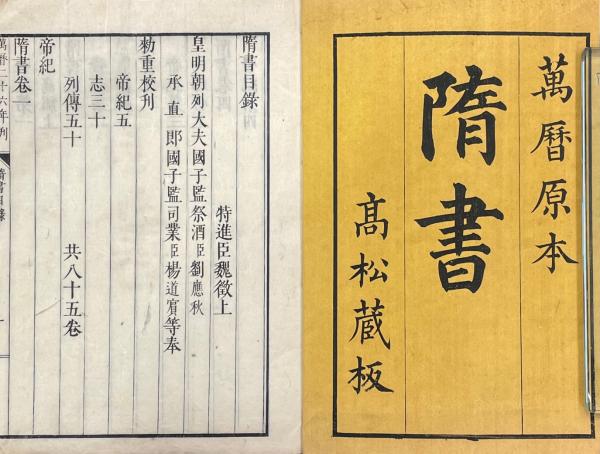 萬曆原本
隋書
髙松蔵板
隋書目錄
特進臣魏徵上
皇明朝列大夫國子監祭酒臣劉應秋
承直郎國子監司業臣楊道賓等奉
勑重校刋
帝紀五
志三十
列傳五十 共八十五卷
帝紀
隋書卷一
萬曆二十六年刊 隋書目錄 一